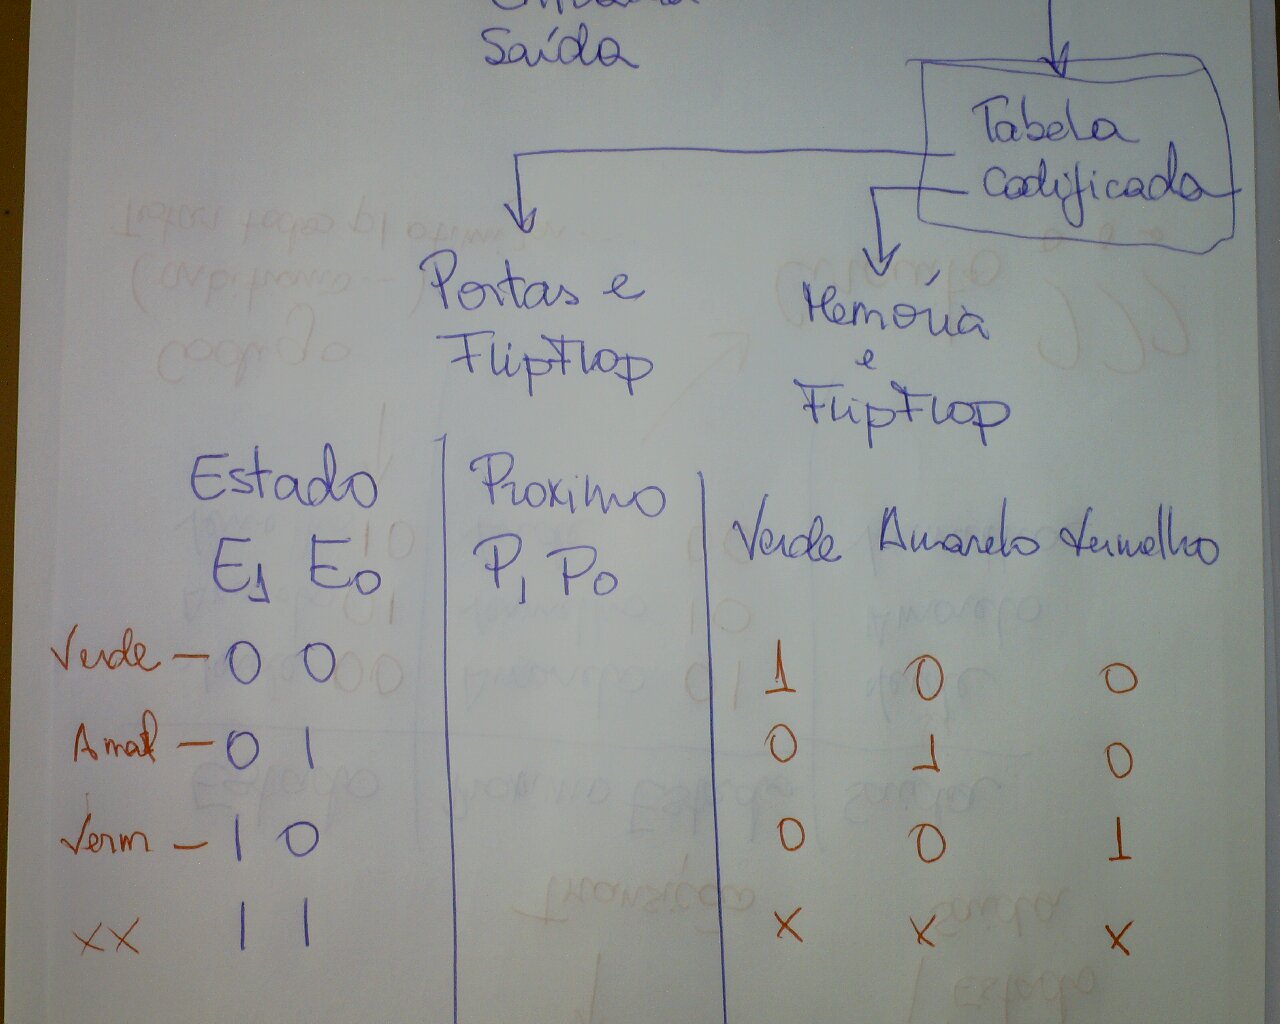 Saída
Tabela
Codificada
Portas e
FlipFlop
Memória
e
FlipFlop
Estado
Proximo
Verde Amarelo Vermelho
E1 E0
P1 P0
Verde - 0 0 1 0 0
Amal - 0 1 0 1 0
Verm - 1 0 0 0 1
xx 1 1 x x x